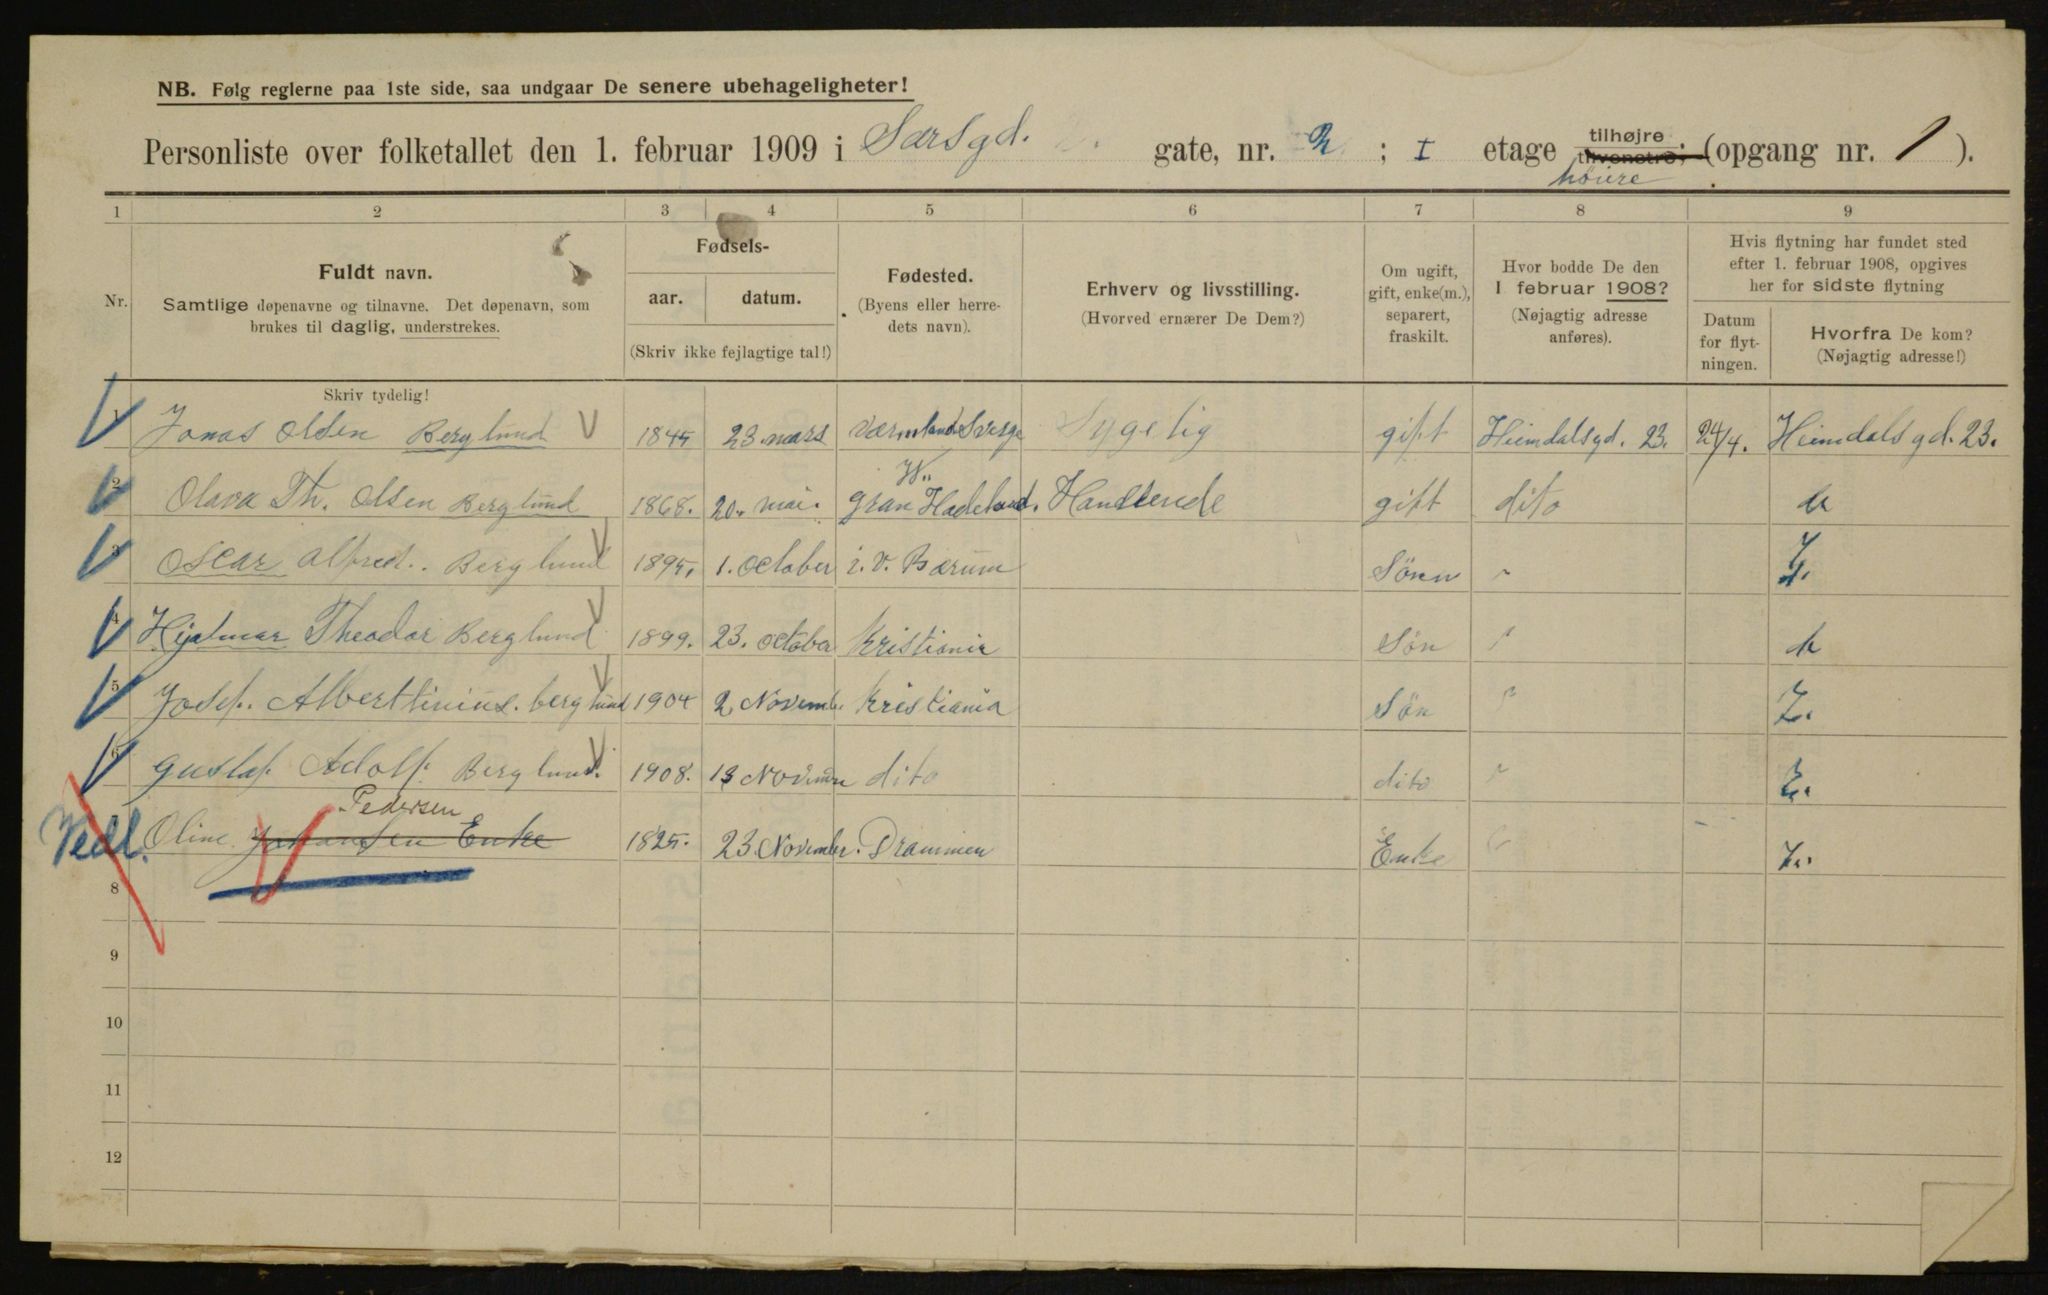 NB. Følg reglerne paa 1ste side, saa undgaar De senere ubehageligheter!
Personliste over folketallet den 1. februar 1909 i Sarsgd. gate, nr. 2 ; I etage tilhøjre tilvenstre; (opgang nr. 1 ).
høire
1 2 3 4 5 6 7 8 9
Nr.
Fuldt navn.
Samtlige døpenavne og tilnavne. Det døpenavn, som
brukes til daglig, understrekes.
Fødsels-
aar. datum.
(Skriv ikke fejlagtige tal!)
Fødested.
(Byens eller herre-
dets navn).
Erhverv og livsstilling.
(Hvorved ernærer De Dem?)
Om ugift,
gift, enke(m.),
separert,
fraskilt.
Hvor bodde De den
1 februar 1908?
(Nøjagtig adresse
anføres).
Hvis flytning har fundet sted
efter 1. februar 1908, opgives
her for sidste flytning
Datum
for flyt-
ningen.
Hvorfra De kom?
(Nøjagtig adresse!)
Skriv tydelig!
1 Jonas Olsen Berglund 1845 23. mars Værmland Sverge Sygelig gift Heimdalsgd. 23. 24/4. Heimdalsgd. 23.
2 Olava Th. Olsen Berglund 1868. 20. mai. Gran Hadeland. Handlende gift dito
3 Oscar Alfred. Berglund 1895. 1. October i. V. Bærum Sönn "
4 Hjalmar Theodor Berglund 1899. 23. October Kristiania Sön "
5 Josef. Alberttinius. berglund 1904 2 Novemb. Kristiania Sön "
6 Gustaf. Adolf. Berglund. 1908. 13 Novem dito dito "
Pedersen
7 Oline Johansen Enke 1825. 23 November. Drammen Enke "
8
9
10
11
12